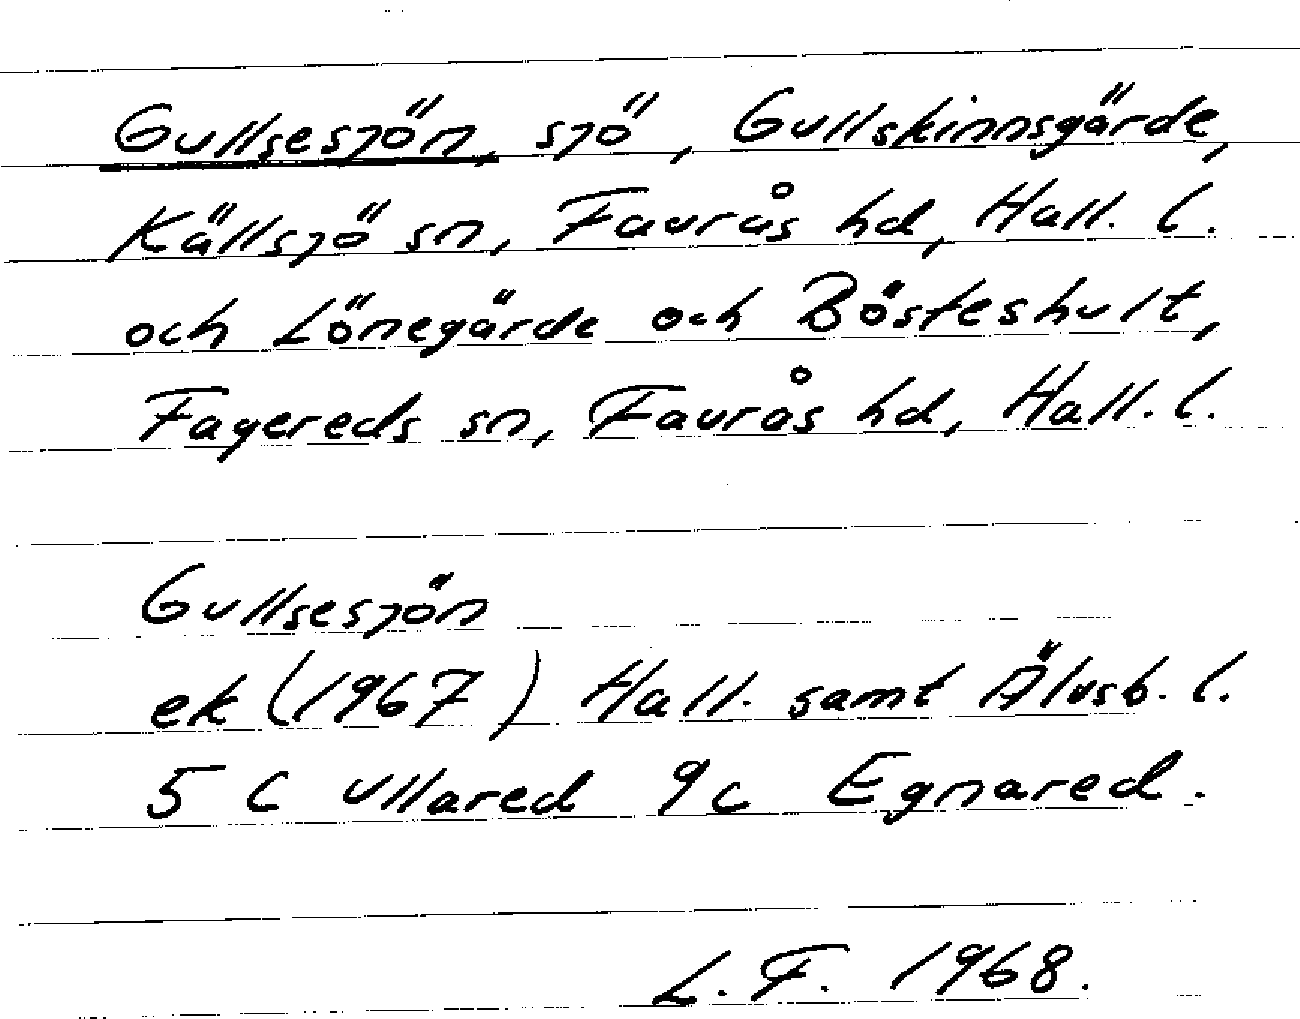 Gullsesjön, sjö, Gullskinnsgärde,
Källsjö sn, Faurås hd, Hall. l.
och Lönegärde och Bösteshult,
Fagereds sn, Faurås hd, Hall. l.
Gullsesjön
ek (1967) Hall. samt Älvsb. l.
5 c Ullared 9c Egnared.
L. F. 1968.